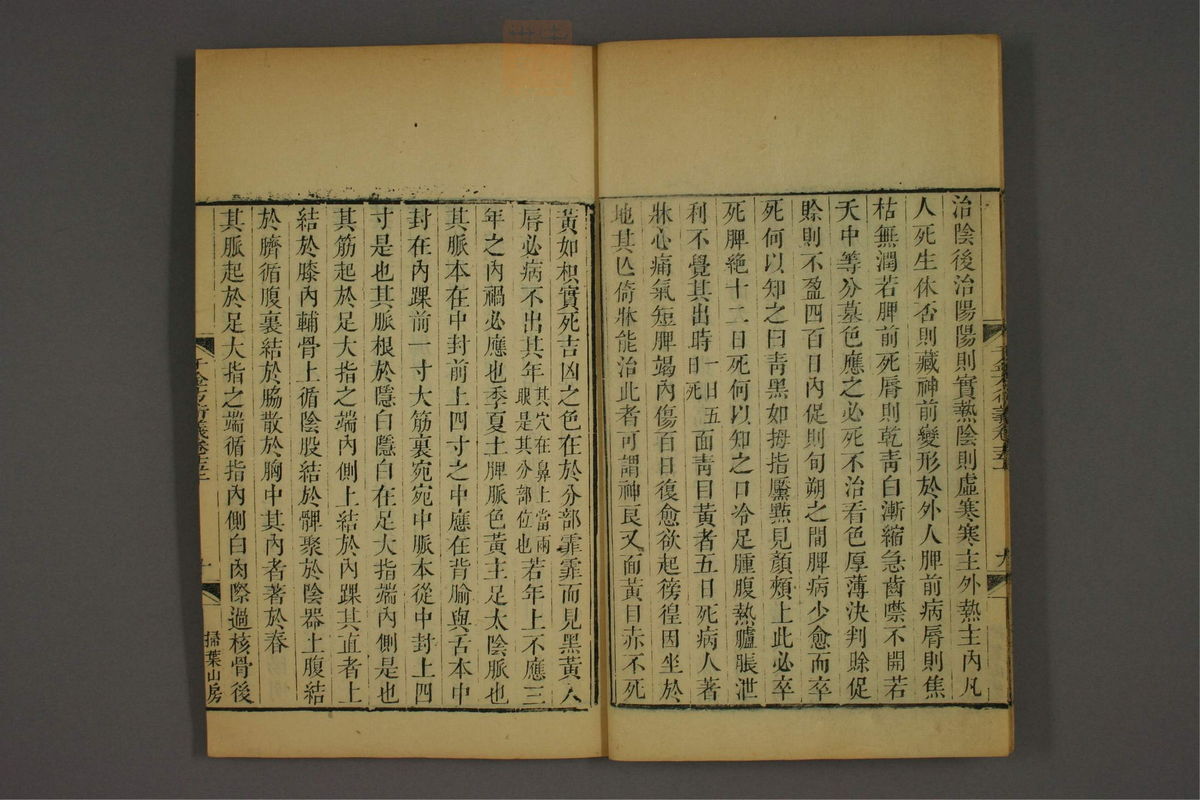 治陰後治陽陽則實熱陰則虛寒寒主外熱主內凡
人死生休否則藏神前變形於外人脾前病脣則焦
枯無潤若脾前死脣則乾青白漸縮急齒噤不開若
天中等分墓色應之必死不治看色厚薄決判賒促
賒則不盈四百日內促則旬朔之間脾病少愈而卒
死何以知之曰青黑如拇指黶㸃見顏頰上此必卒
死脾絕十二日死何以知之口冷足腫腹熱臚脹泄
利不覺其出時一曰五日死面青目黃者五日死病人著
牀心痛氣短脾竭內傷百日復愈欲起徬徨因坐於
地其亾倚牀能治此者可謂神良又面黃目赤不死
黃如枳實死吉凶之色在於分部霏霏而見黑黃入
脣必病不出其年其穴在鼻上當兩眼是其分部位也若年上不應三
年之內禍必應也季夏土脾脈色黃主足太陰脈也
其脈本在中封前上四寸之中應在背腧與舌本中
封在內踝前一寸大筋裏宛宛中脈本從中封上四
寸是也其脈根於隱白隱白在足大指端內側是也
其筋起於足大指之端內側上結於內踝其直者上
結於膝內輔骨上循陰股結於髀聚於陰器上腹結
於臍循腹裏結於脇散於胸中其內者著於脊
其脈起於足大指之端循指內側白肉際過核骨後
掃葉山房